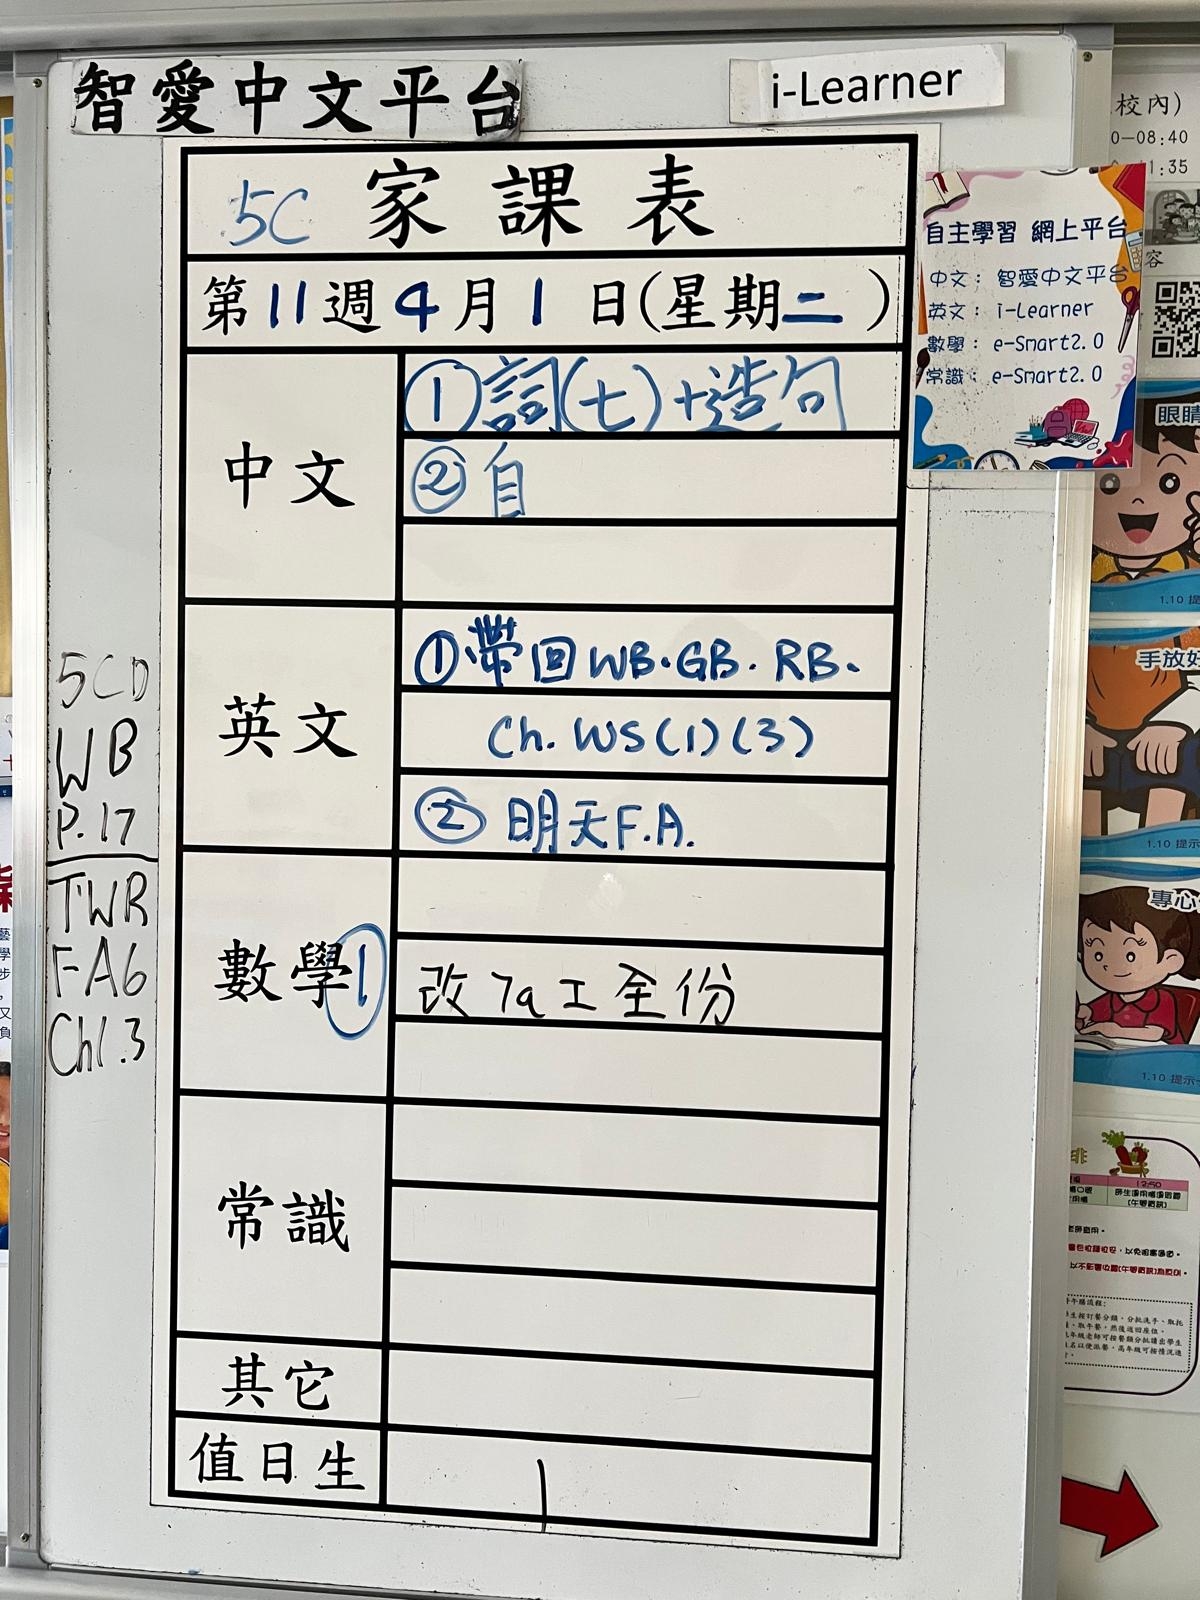 智愛中文平台
i-Learner
5C 家課表
第11週4月1日(星期二)
中文
①詞(七)+造句
②自
英文
①帶回WB.GB.RB.
Ch. WS(1)(3)
②明天F.A.
數學①
改7a工全份
常識
其它
值日生
5CD
WB
P.17
TWR
FA6
Ch1.3
自主學習 網上平台
中文: 智愛中文平台
英文: i-Learner
數學: e-Smart2.0
常識: e-Smart2.0
校內)
0-08:40
1:35
容
眼睛
1.10 提
手放好
1.10 提示
專心
1.10 提示
12:50